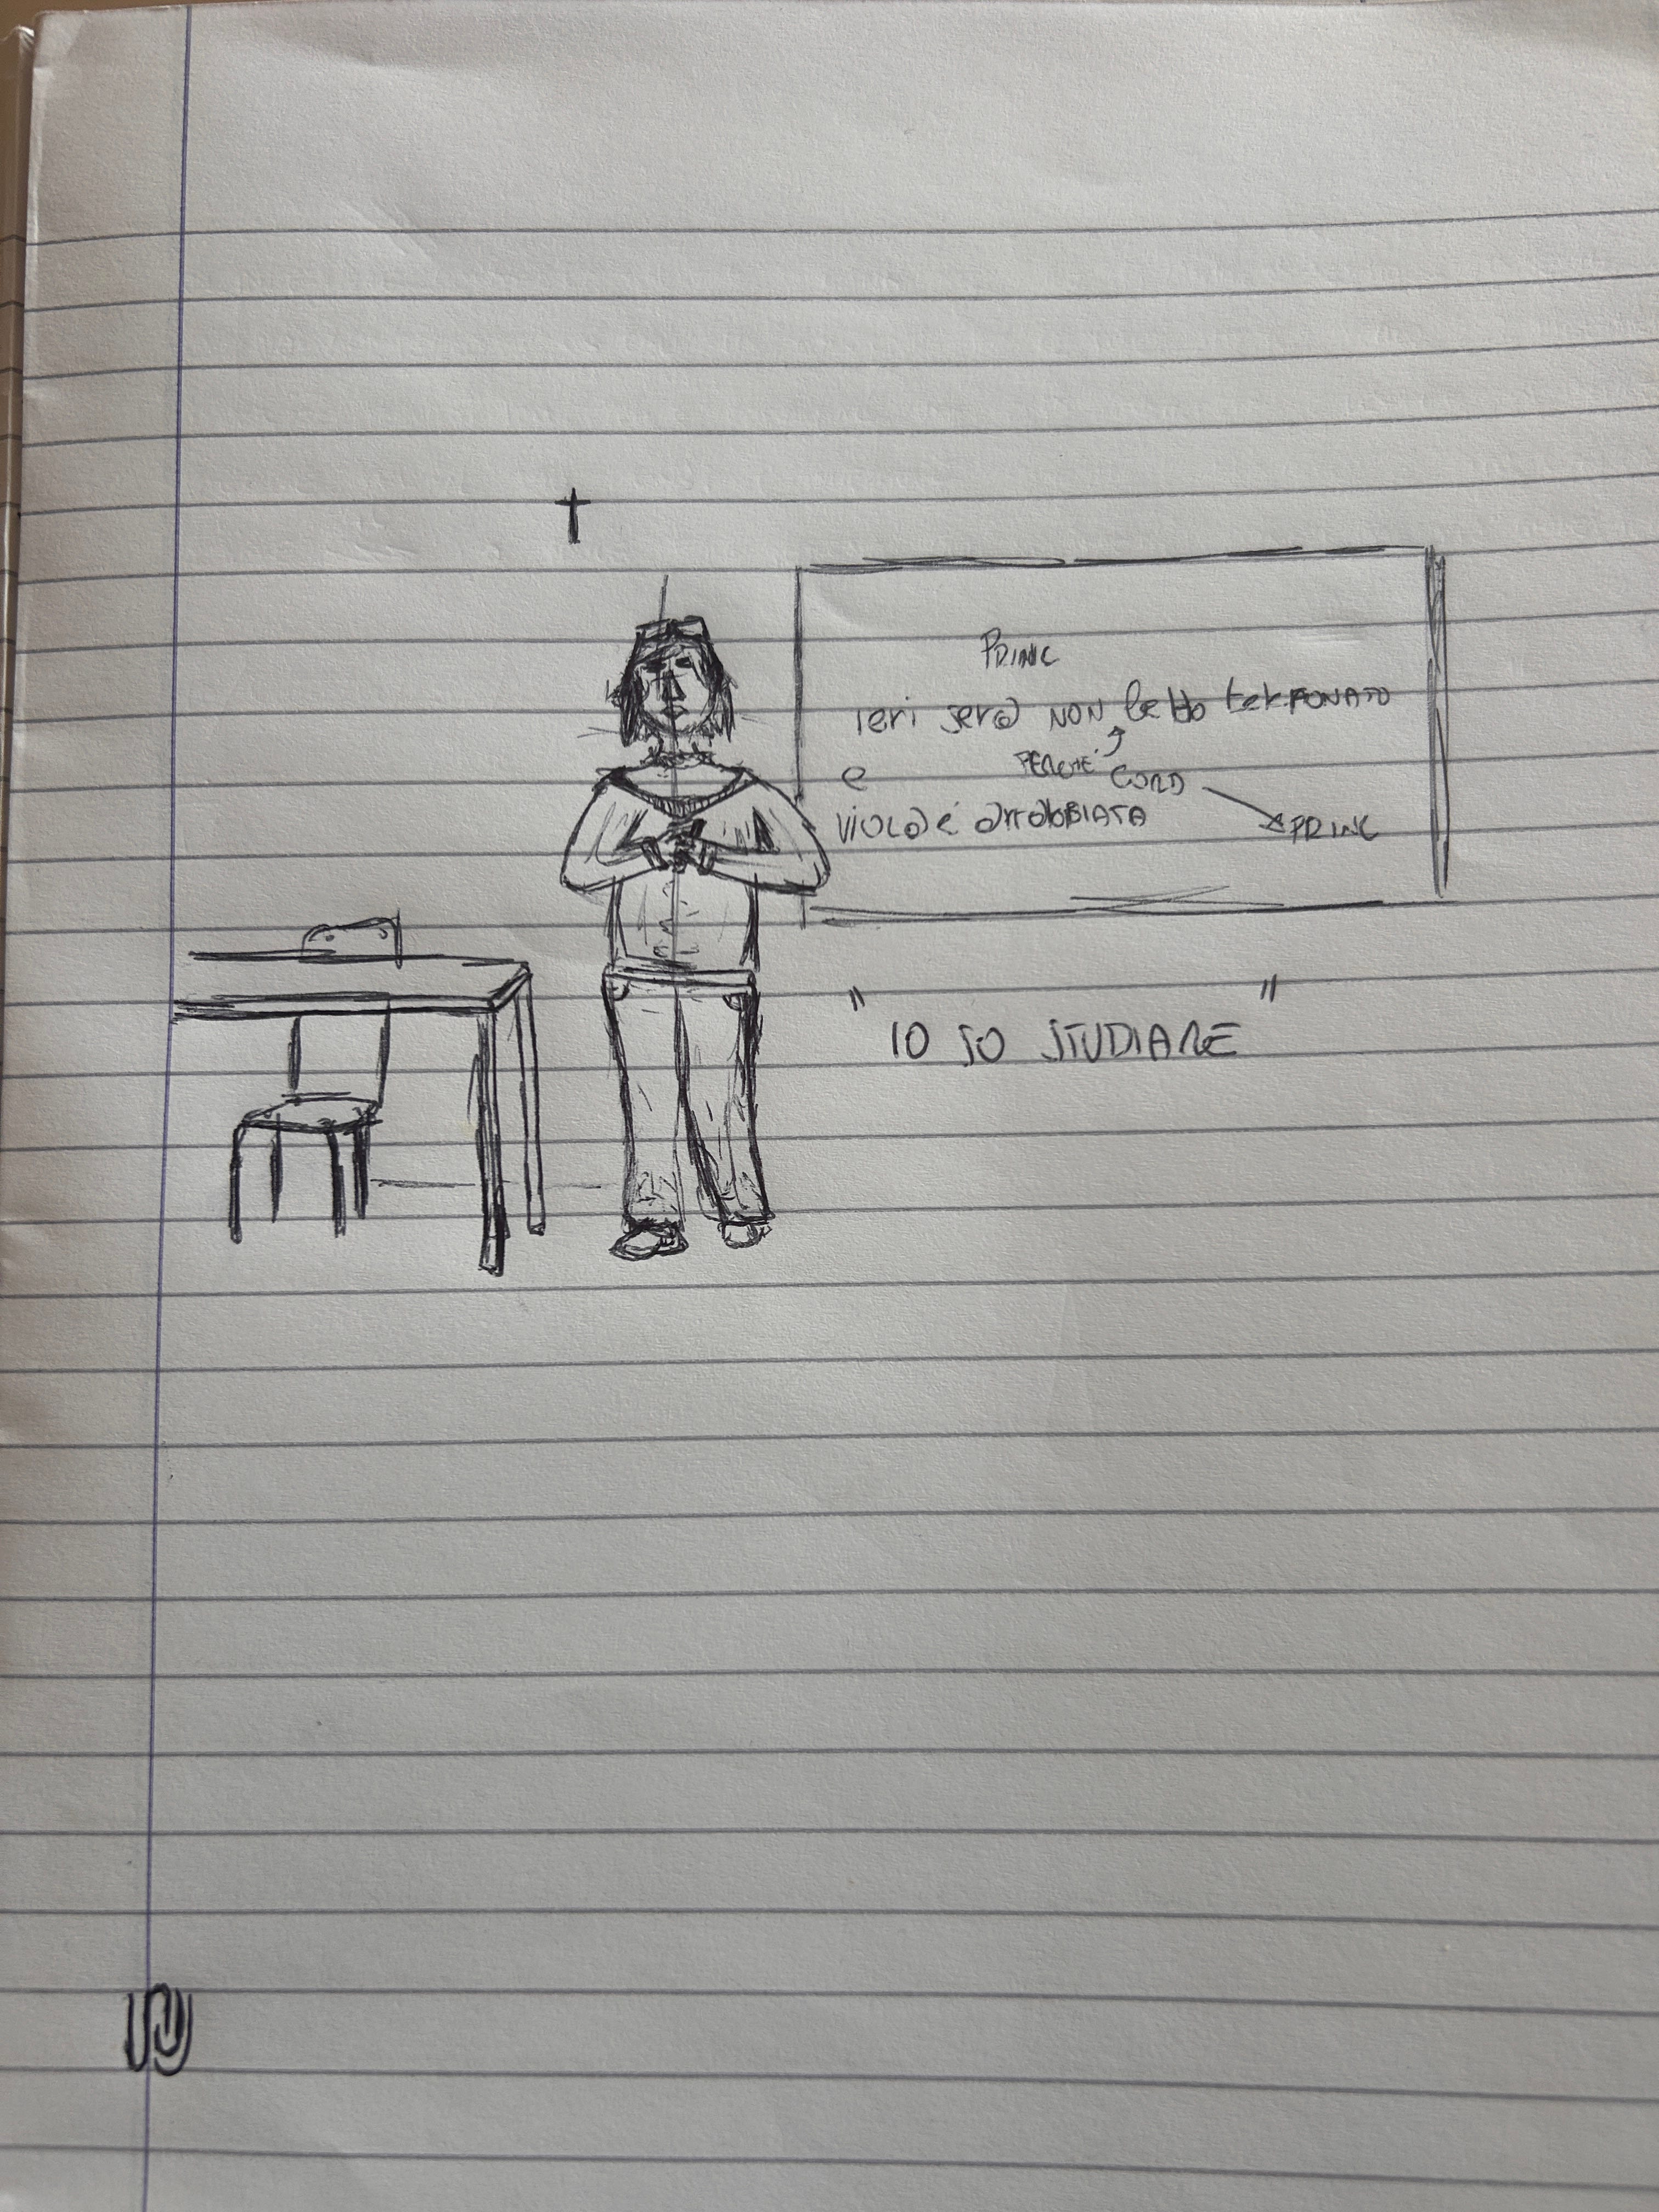 PRINC
ieri sera NON le ho telefonato
PERCHE'
e CORD
VIOLA é arrabBIATA PRINC
" IO SO STUDIARE "